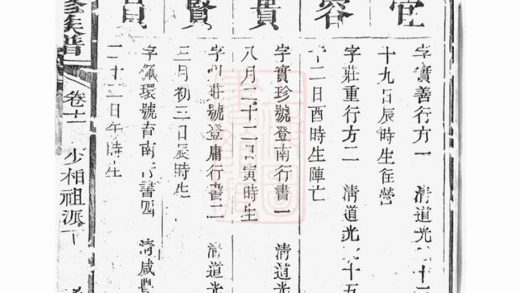 官
字實善行方一 清道光十二
十九日辰時生往營
容
字莊重行方二 清道光十五
十二日酉時生陣亡
字實珍號登南行書一 清道光
八月二十二日寅時生
賢
莊號登庸行書二 清道光
三月初三日辰時生
字佩環號春南行書四 清咸豐
二十二日午時生
修族譜 卷十二 少相祖派下